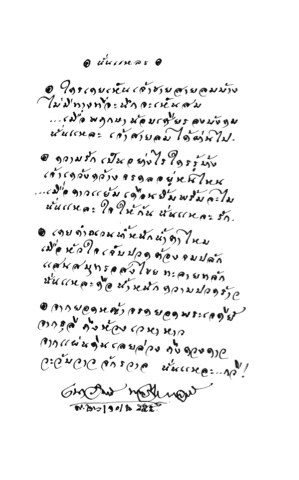 ๏ นั่นแหละ ๏
๏ ใครเคยเห็นเจ้าชายสายลมบ้าง
ไม่มีทางที่จะนึกจะเห็นสม
...เมื่อพฤกษาน้อมเศียรลงบังคม
นั่นแหละ เจ้าสายลม ได้ผ่านไป.
๏ ความรัก เป็นอย่างไร ใครรู้บ้าง
เจ้าเคว้งคว้างจรดลอยู่หนไหน
...เมื่อดาวแย้มเดือนยิ้มพริ้มละไม
นั่นแหละ ใจให้กัน นั่นแหละ รัก.
๏ เคยคำนวณน้ำหนักน้ำตาไหม
เมื่อหัวใจเจ็บปวดต้องจมปลัก
แสนสมุทรอสงไขยทะลายทลัก
นั่นแหละคือน้ำหนักความปวดร้าว
๏ จากยอดหญ้าจรดยอดพระเจดีย์
จากธุลีถึงห้องเวหาหาว
จากแผ่นดินเลยล่วงถึงดวงดาว
วะวับวาวจักรวาล นั่นแหละ...กวี!